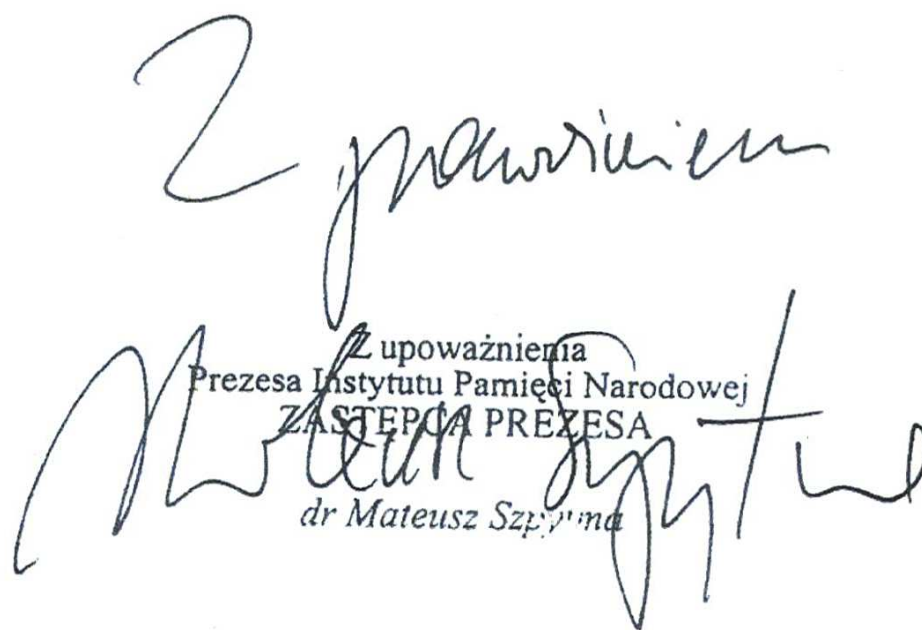 Z poważaniem
Z upoważnienia
Prezesa Instytutu Pamięci Narodowej
ZASTĘPCA PREZESA
Mateusz Szpytma
dr Mateusz Szpytma